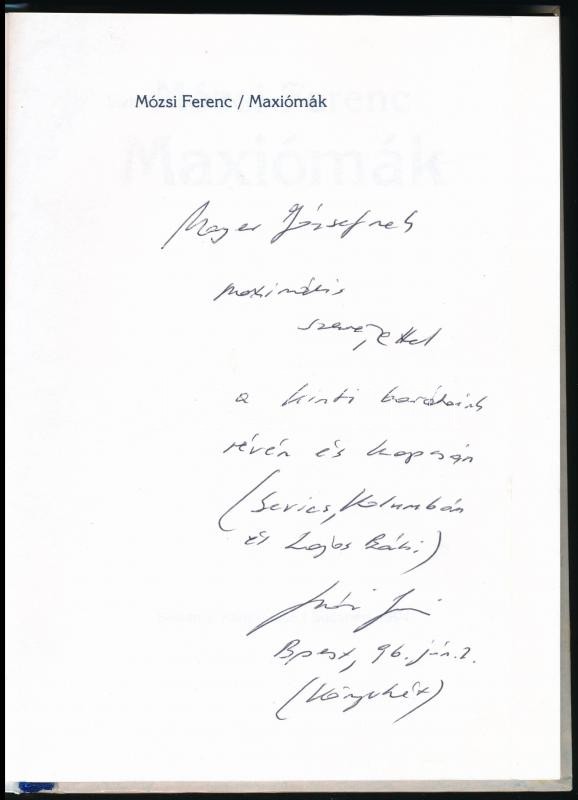 Mózsi Ferenc / Maxiómák
Mayer Józsefnek
maximális
szeretettel
a kinti barátaink
révén és kapcsán
(Sevics, Kolumbán
és Lajos
Bpest, 96. jún. 2.
(Könyvhét)